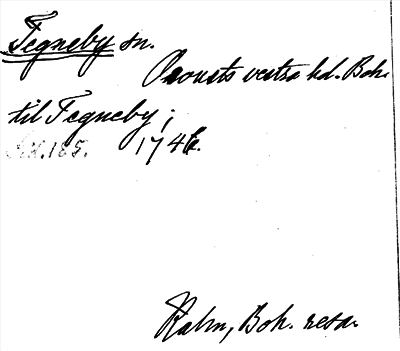 Tegneby sn.
Orousts vestra hd. Boh.
til Tegneby;
Sid. 185. 1746.
Kalm, Boh. resa.